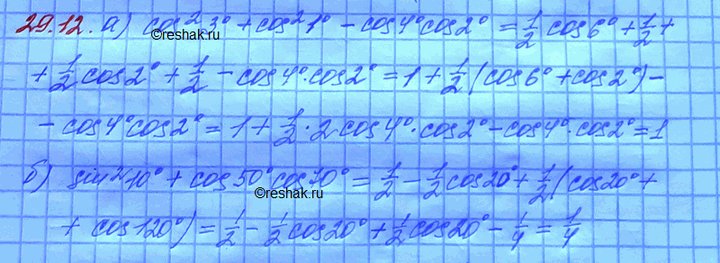 29.12. а) cos²3° + cos²1° - cos4°cos2° = 1/2 cos6° + 1/2 +
©reshak.ru
+ 1/2 cos2° + 1/2 - cos4°·cos2° = 1 + 1/2 (cos6° + cos2°) -
- cos4°cos2° = 1 + 1/2 · 2 cos4°·cos2° - cos4°·cos2° = 1
б) sin²10° + cos50°cos70° = 1/2 - 1/2 cos20° + 1/2 (cos20° +
©reshak.ru
+ cos120°) = 1/2 - 1/2 cos20° + 1/2 cos20° - 1/4 = 1/4